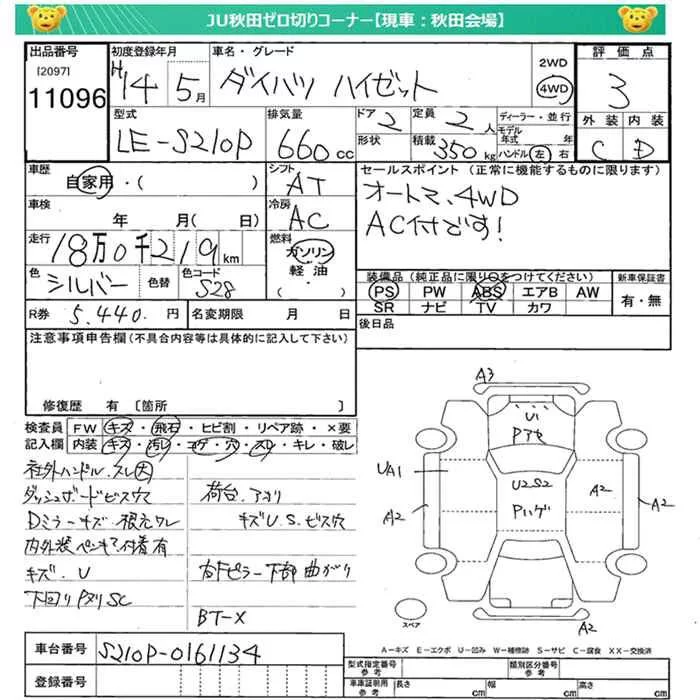 JU秋田ゼロ切りコーナー【現車：秋田会場】
出品番号
[2097]
11096
初度登録年月
H14 5月
車名・グレード
ダイハツ ハイゼット
2WD
4WD
評価点
3
型式
LE-S210P
排気量
660cc
ドア
2
形状
定員
2人
積載
350kg
ディーラー・並行
モデル年式 年
ハンドル 左 右
外装 内装
C D
車歴
自家用・( )
シフト
AT
セールスポイント（正常に機能するものに限ります）
オートマ、4WD
AC付です!
車検
年 月( 日)
冷房
AC
走行
18万0千219km
燃料
ガソリン
軽油
( ・ )
色
シルバー
色替
色コード
S28
装備品（純正品に限り○をつけてください）
PS PW ABS エアB AW
SR ナビ TV カワ
新車保証書
有・無
R券 5.440.円
名変期限 月 日
後日品
注意事項申告欄（不具合内容等は具体的に記入して下さい）
修復歴 有 〔箇所 〕
検査員記入欄
FW キズ・飛石・ヒビ割・リペア跡・×要
内装 キズ・汚れ・コゲ・穴・スレ・キレ・破レ
社外ハンドル.スレ
ダッシュボードビス穴
Dミラーキズ 根元ワレ
内外装ペンキ付着有
キズ.U
下回りPタリSC
荷台.アオリ
キズU.S.ビス穴
右Fピラー下部曲がり
BT-X
A3
U1
Pアセ
UA1
U2S2
Pハゲ
A2
A2
A2
A2
スペア
A－キズ E－エクボ U－凹み W－補修跡 S－サビ C－腐食 XX－交換済
車台番号
S210P-0161134
登録番号
型式指定番号
参考
類別区分番号
参考
車庫証明用
参考
長さ cm
幅 cm
高さ cm